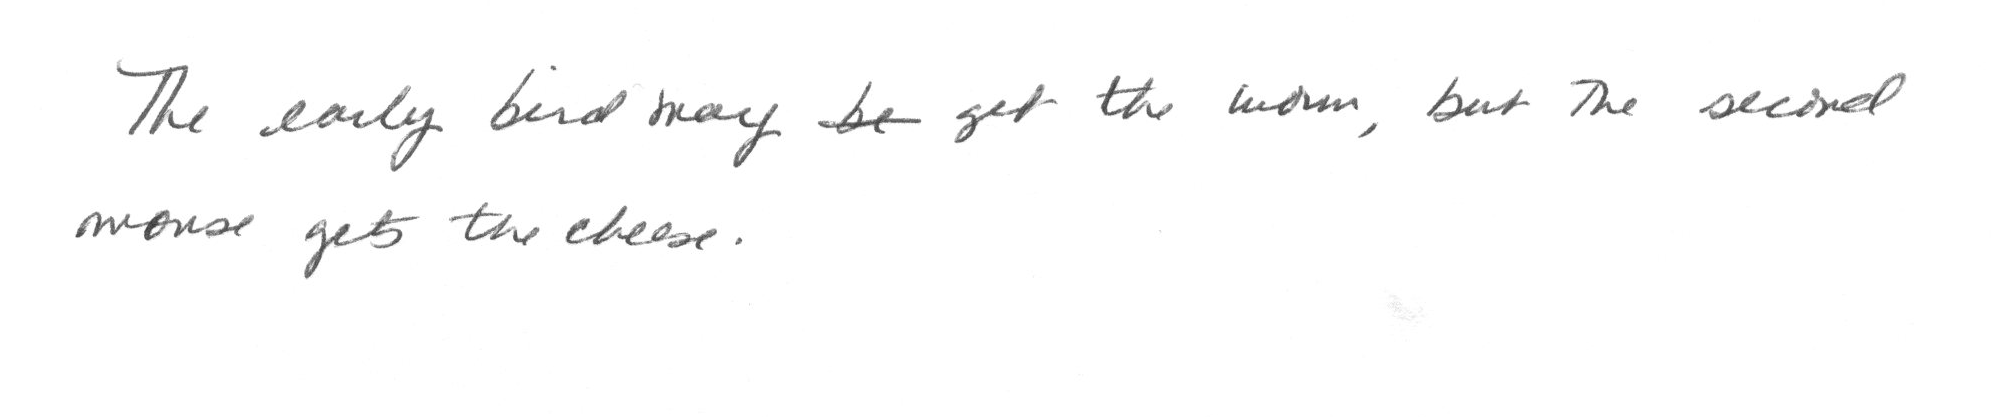 The early bird may be get the worm, but the second
mouse gets the cheese.